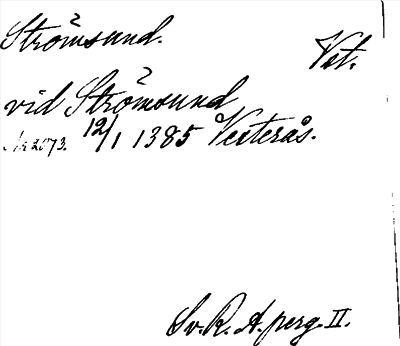 Strömsund.
Vst.
vid Strömsund
Nr 2073. 12/1 1385 Vesterås.
Sv. R. A. perg. II.